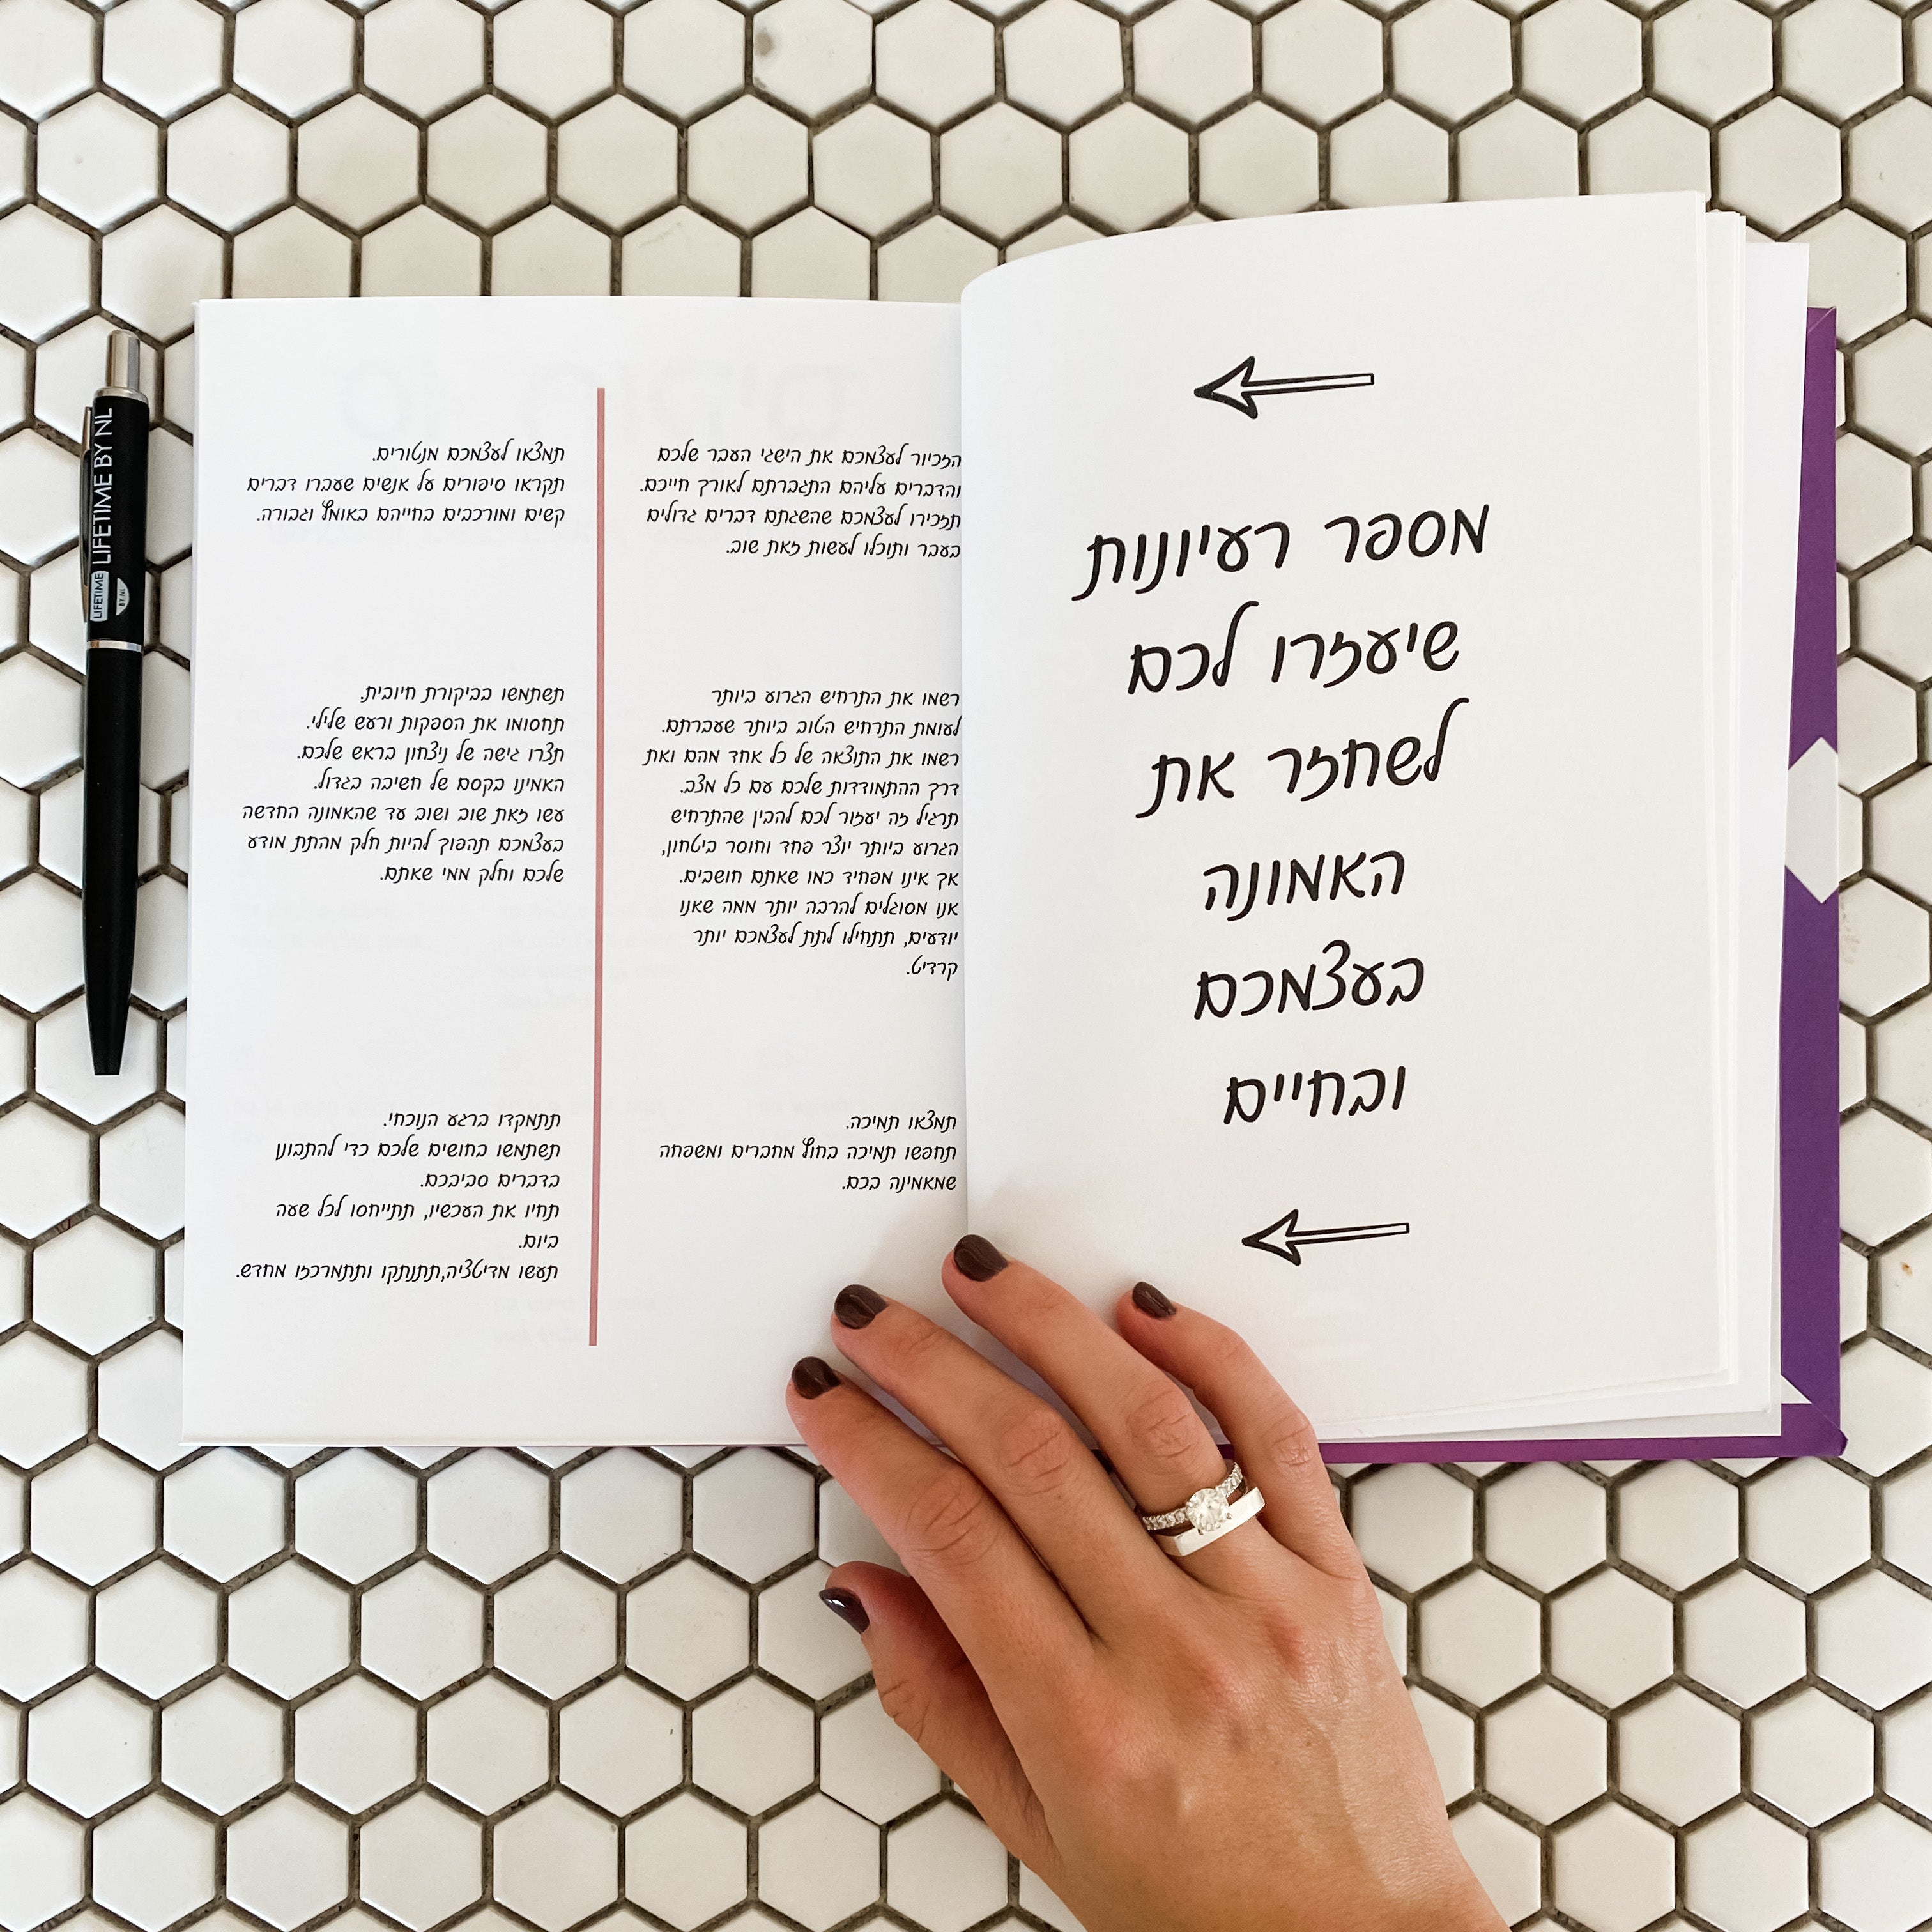 מספר רעיונות
שיעזרו לכם
לשחזר את
האמונה
בעצמכם
ובחיים
הזכיור לעצמכם את הישגי העבר שלכם
והדברים עליהם התגברתם לאורך חייכם.
תזכירו לעצמכם שהשגתם דברים גדולים
בעבר ותוכלו לעשות זאת שוב.
רשמו את התרחיש הגרוע ביותר
לעומת התרחיש הטוב ביותר שעברתם.
רשמו את התוצאה של כל אחד מהם ואת
דרך ההתמודדות שלכם עם כל מצב.
תרגיל זה יעזור לכם להבין שהתרחיש
הגרוע ביותר יוצר פחד וחוסר ביטחון,
אך אינו מפחיד כמו שאתם חושבים.
אנו מסוגלים להרבה יותר ממה שאנו
יודעים, תתחילו לתת לעצמכם יותר
קרדיט.
תמצאו תמיכה.
תחפשו תמיכה בחוץ מחברים ומשפחה
שמאמינה בכם.
תמצאו לעצמכם מנטורים.
תקראו סיפורים על אנשים שעברו דברים
קשים ומורכבים בחייהם באומץ וגבורה.
תשתמשו בביקורת חיובית.
תחסומו את הספקות ורעש שלילי.
תצרו גישה של ניצחון בראש שלכם.
האמינו בקסם של חשיבה בגדול.
עשו זאת שוב ושוב עד שהאמונה החדשה
בעצמכם תהפוך להיות חלק מהתת מודע
שלכם וחלק ממי שאתם.
תתמקדו ברגע הנוכחי.
תשתמשו בחושים שלכם כדי להתבונן
בדברים סביבכם.
תחיו את העכשיו, תתייחסו לכל שעה
ביום.
תעשו מדיטציה,תתנתקו ותתמרכזו מחדש.
LIFETIME BY NL
LIFETIME
BY NL